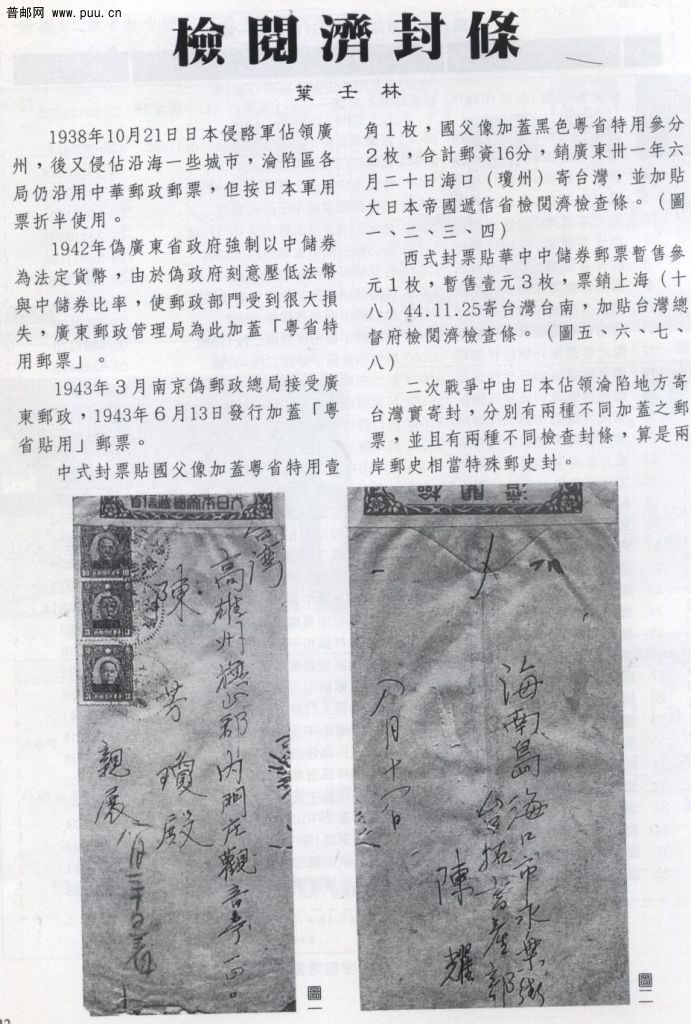 普邮网 www.puu.cn
檢閱濟封條
葉壬林
1938年10月21日日本侵略軍佔領廣
州，後又侵佔沿海一些城市，淪陷區各
局仍沿用中華郵政郵票，但按日本軍用
票折半使用。
1942年偽廣東省政府強制以中儲券
為法定貨幣，由於偽政府刻意壓低法幣
與中儲券比率，使郵政部門受到很大損
失，廣東郵政管理局為此加蓋「粵省特
用郵票」。
1943年３月南京偽郵政總局接受廣
東郵政，1943年６月13日發行加蓋「粵
省貼用」郵票。
中式封票貼國父像加蓋粵省特用壹
角１枚，國父像加蓋黑色粵省特用參分
２枚，合計郵資16分，銷廣東卅一年六
月二十日海口（瓊州）寄台灣，並加貼
大日本帝國遞信省檢閱濟檢查條。（圖
一、二、三、四）
西式封票貼華中中儲券郵票暫售參
元１枚，暫售壹元３枚，票銷上海（十
八）44.11.25寄台灣台南，加貼台灣總
督府檢閱濟檢查條。（圖五、六、七、
八）
二次戰爭中由日本佔領淪陷地方寄
台灣實寄封，分別有兩種不同加蓋之郵
票，並且有兩種不同檢查封條，算是兩
岸郵史相當特殊郵史封。
大日本帝國遞信省
台湾
高雄州旗山郡內門庄觀音亭一四〇
陳芳瓊殿
親展
圖一
濟閱檢
海南島海口市永樂街
台拓畜產部
陳耀
八月十八日
圖二